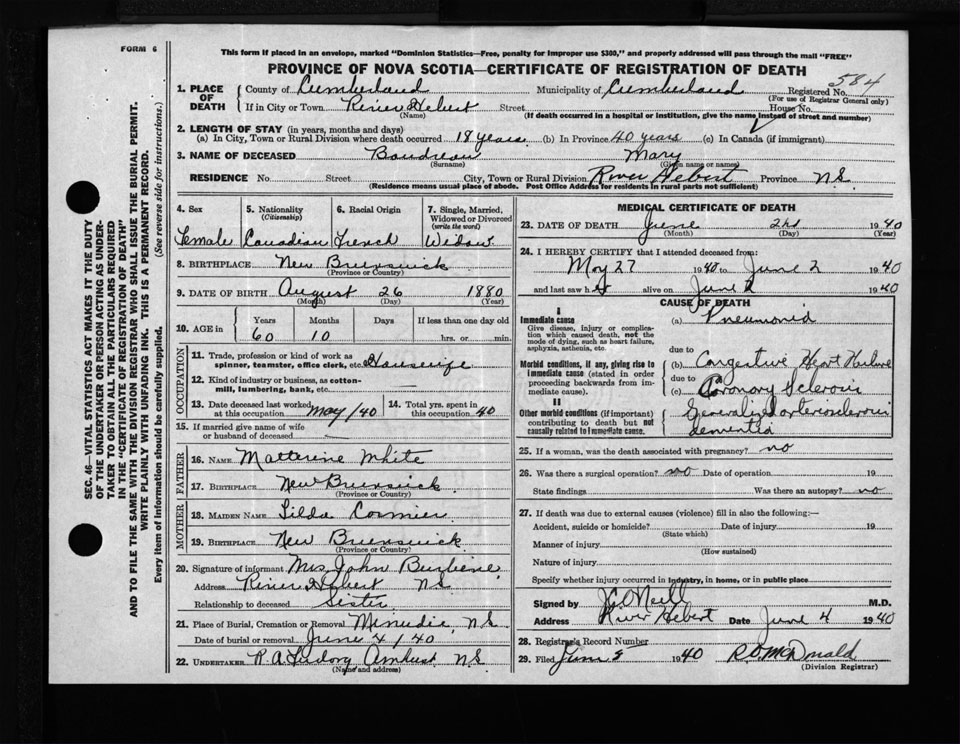 FORM 6
This form if placed in an envelope, marked "Dominion Statistics—Free, penalty for improper use $300," and properly addressed will pass through the mail "FREE"
PROVINCE OF NOVA SCOTIA—CERTIFICATE OF REGISTRATION OF DEATH
584
1. PLACE OF DEATH County of Cumberland Municipality of Cumberland Registered No.
(For use of Registrar General only)
If in City or Town River Hebert Street House No.
(Name) (If death occurred in a hospital or institution, give the name instead of street and number)
2. LENGTH OF STAY (in years, months and days)
(a) In City, Town or Rural Division where death occurred 18 years. (b) In Province 40 years (c) In Canada (if immigrant)
3. NAME OF DECEASED Boudreau Mary
(Surname) (Given name or names)
RESIDENCE No. Street City, Town or Rural Division River Hebert Province N.S.
(Residence means usual place of abode. Post Office Address for residents in rural parts not sufficient)
SEC. 46—VITAL STATISTICS ACT MAKES IT THE DUTY
OF THE UNDERTAKER OR PERSON ACTING AS UNDER-
TAKER TO OBTAIN ALL THE PARTICULARS REQUIRED
IN THE "CERTIFICATE OF REGISTRATION OF DEATH"
AND TO FILE THE SAME WITH THE DIVISION REGISTRAR WHO SHALL ISSUE THE BURIAL PERMIT.
WRITE PLAINLY WITH UNFADING INK. THIS IS A PERMANENT RECORD.
Every item of information should be carefully supplied. (See reverse side for instructions.)
4. Sex 5. Nationality (Citizenship) 6. Racial Origin 7. Single, Married, Widowed or Divorced (write the word)
Female Canadian French Widow
8. BIRTHPLACE New Brunswick
(Province or Country)
9. DATE OF BIRTH August 26 1880
(Month) (Day) (Year)
10. AGE in Years Months Days If less than one day old
60 10 hrs. or min.
OCCUPATION
11. Trade, profession or kind of work as
spinner, teamster, office clerk, etc. Housewife
12. Kind of industry or business, as cotton-
mill, lumbering, bank, etc.
13. Date deceased last worked at this occupation May/40 14. Total yrs. spent in this occupation 40
15. If married give name of wife
or husband of deceased
FATHER
16. NAME White
17. BIRTHPLACE New Brunswick
(Province or Country)
MOTHER
18. MAIDEN NAME Tilda Cormier
19. BIRTHPLACE New Brunswick
(Province or Country)
20. Signature of informant Mrs. John
Address River Hebert N.S.
Relationship to deceased Sister
21. Place of Burial, Cremation or Removal Minudie, N.S.
Date of burial or removal June 4/40
22. UNDERTAKER R. A. Amherst N.S.
(Name and address)
MEDICAL CERTIFICATE OF DEATH
23. DATE OF DEATH June 2nd 1940
(Month) (Day) (Year)
24. I HEREBY CERTIFY that I attended deceased from:
May 27 1940 to June 2 1940
and last saw her alive on June 2 1940
CAUSE OF DEATH
I
Immediate cause (a) Pneumonia
Give disease, injury or complica-
tion which caused death, not the
mode of dying, such as heart failure,
asphyxia, asthenia, etc.
due to
Morbid conditions, if any, giving rise to (b) Congestive Heart Failure
immediate cause (stated in order due to
proceeding backwards from im- (c) Coronary Sclerosis
mediate cause).
II
Other morbid conditions (if important) Generalized arteriosclerosis
contributing to death but not dementia
causally related to immediate cause.
25. If a woman, was the death associated with pregnancy? no
26. Was there a surgical operation? no Date of operation 19
State findings Was there an autopsy? no
27. If death was due to external causes (violence) fill in also the following:—
Accident, suicide or homicide? Date of injury 19
(State which)
Manner of injury
(How sustained)
Nature of injury
Specify whether injury occurred in industry, in home, or in public place
Signed by J.C. O'Neill M.D.
Address River Hebert Date June 4 1940
28. Registrar's Record Number
29. Filed June 5 1940 R.D. McDonald
(Division Registrar)